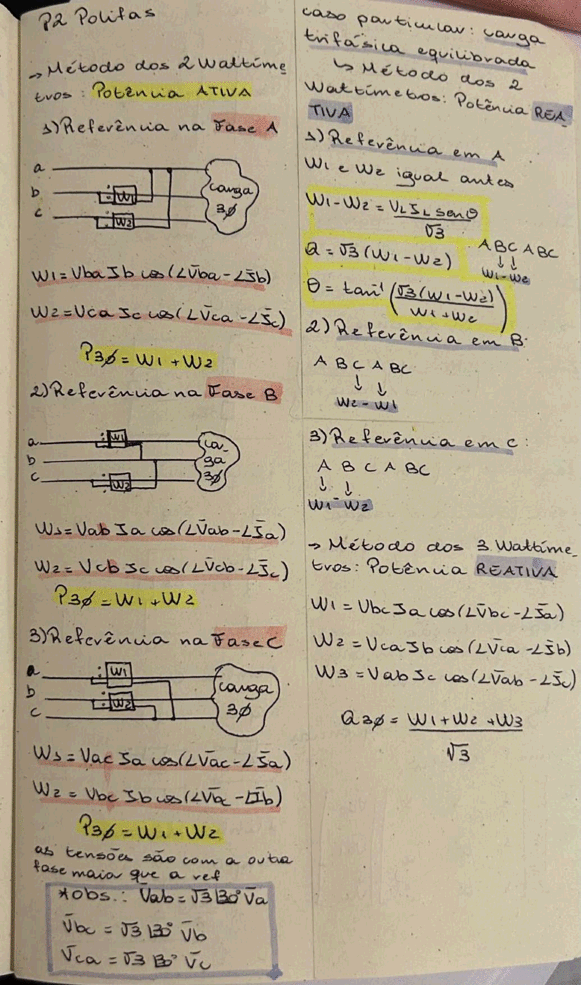 P2 Polifas
→ Método dos 2 Wattíme
tros: Potência ATIVA
1) Referência na Fase A
a
b
c
W1
W2
carga
3ø
W1 = Vba Ib cos(∠V̄ba - ∠Īb)
W2 = Vca Ic cos(∠V̄ca - ∠Īc)
P3ø = W1 + W2
2) Referência na Fase B
a
b
c
W1
W2
car-
ga
3ø
W1 = Vab Ia cos(∠V̄ab - ∠Īa)
W2 = Vcb Ic cos(∠V̄cb - ∠Īc)
P3ø = W1 + W2
3) Referência na Fase C
a
b
c
W1
W2
carga
3ø
W1 = Vac Ia cos(∠V̄ac - ∠Īa)
W2 = Vbc Ib cos(∠V̄bc - ∠Īb)
P3ø = W1 + W2
as tensões são com a outra
fase maia que a ref
*obs.: V̄ab = √3 |30° V̄a
V̄bc = √3 |30° V̄b
V̄ca = √3 |30° V̄c
caso particular: carga
trifásica equilibrada
↳ Método dos 2
Wattímetros: Potência REA
TIVA
1) Referência em A
W1 e W2 igual antes
W1 - W2 = VL IL senθ
√3
Q = √3 (W1 - W2)
A B C A B C
↓ ↓
W1 - W2
θ = tan⁻¹ (√3 (W1 - W2)
W1 + W2)
2) Referência em B
A B C A B C
↓ ↓
W2 - W1
3) Referência em C:
A B C A B C
↓ ↓
W1 - W2
→ Método dos 3 Wattíme-
tros: Potência REATIVA
W1 = Vbc Ia cos(∠V̄bc - ∠Īa)
W2 = Vca Ib cos(∠V̄ca - ∠Īb)
W3 = Vab Ic cos(∠V̄ab - ∠Īc)
Q3ø = W1 + W2 + W3
√3